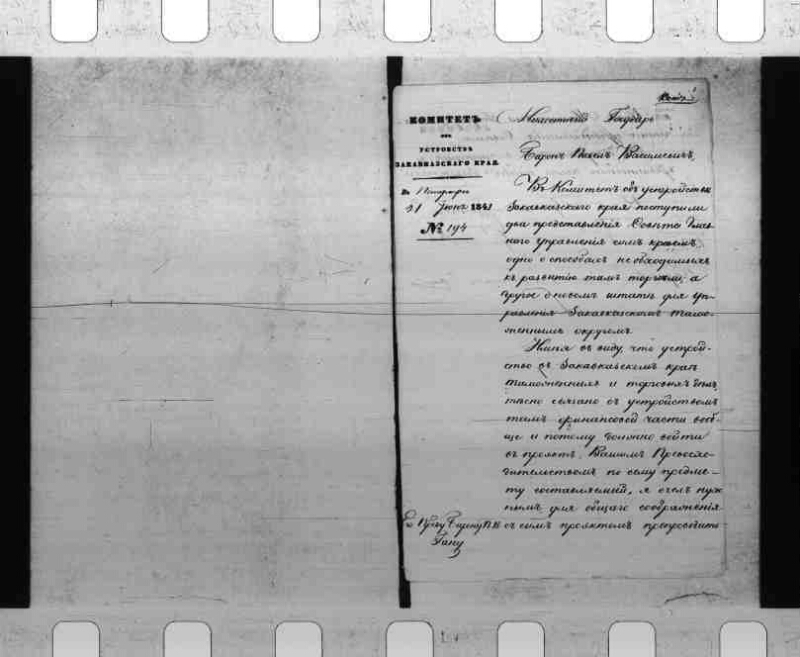 Копія
КОМИТЕТЪ
объ
УСТРОЙСТВѢ
ЗАКАВКАЗСКАГО КРАЯ.
31 Іюля 1841
№ 194
Милостивый Государь
Баронъ Павелъ Васильевичъ,
Въ Комитетъ объ устройствѣ
Закавказскаго края поступили
два представленія Совѣта Глав-
наго управленія симъ краемъ,
одно о способахъ необходимыхъ
къ развитію тамъ торговли, а
другое о новомъ штатѣ для Уп-
равленія Закавказскимъ тамо-
женнымъ округомъ.
Имѣя въ виду, что устрой-
ство въ Закавказскомъ краѣ
таможенныхъ и торговыхъ дѣлъ,
тѣсно связано съ устройствомъ
тамъ финансовой части вооб-
ще и потому должно войти
въ проэктъ, Вашимъ Превосхо-
дительствомъ по сему предме-
ту составляемый, я счелъ нуж-
нымъ для общаго соображенія
съ симъ проэктомъ препроводить
Барону П. В.
Гану